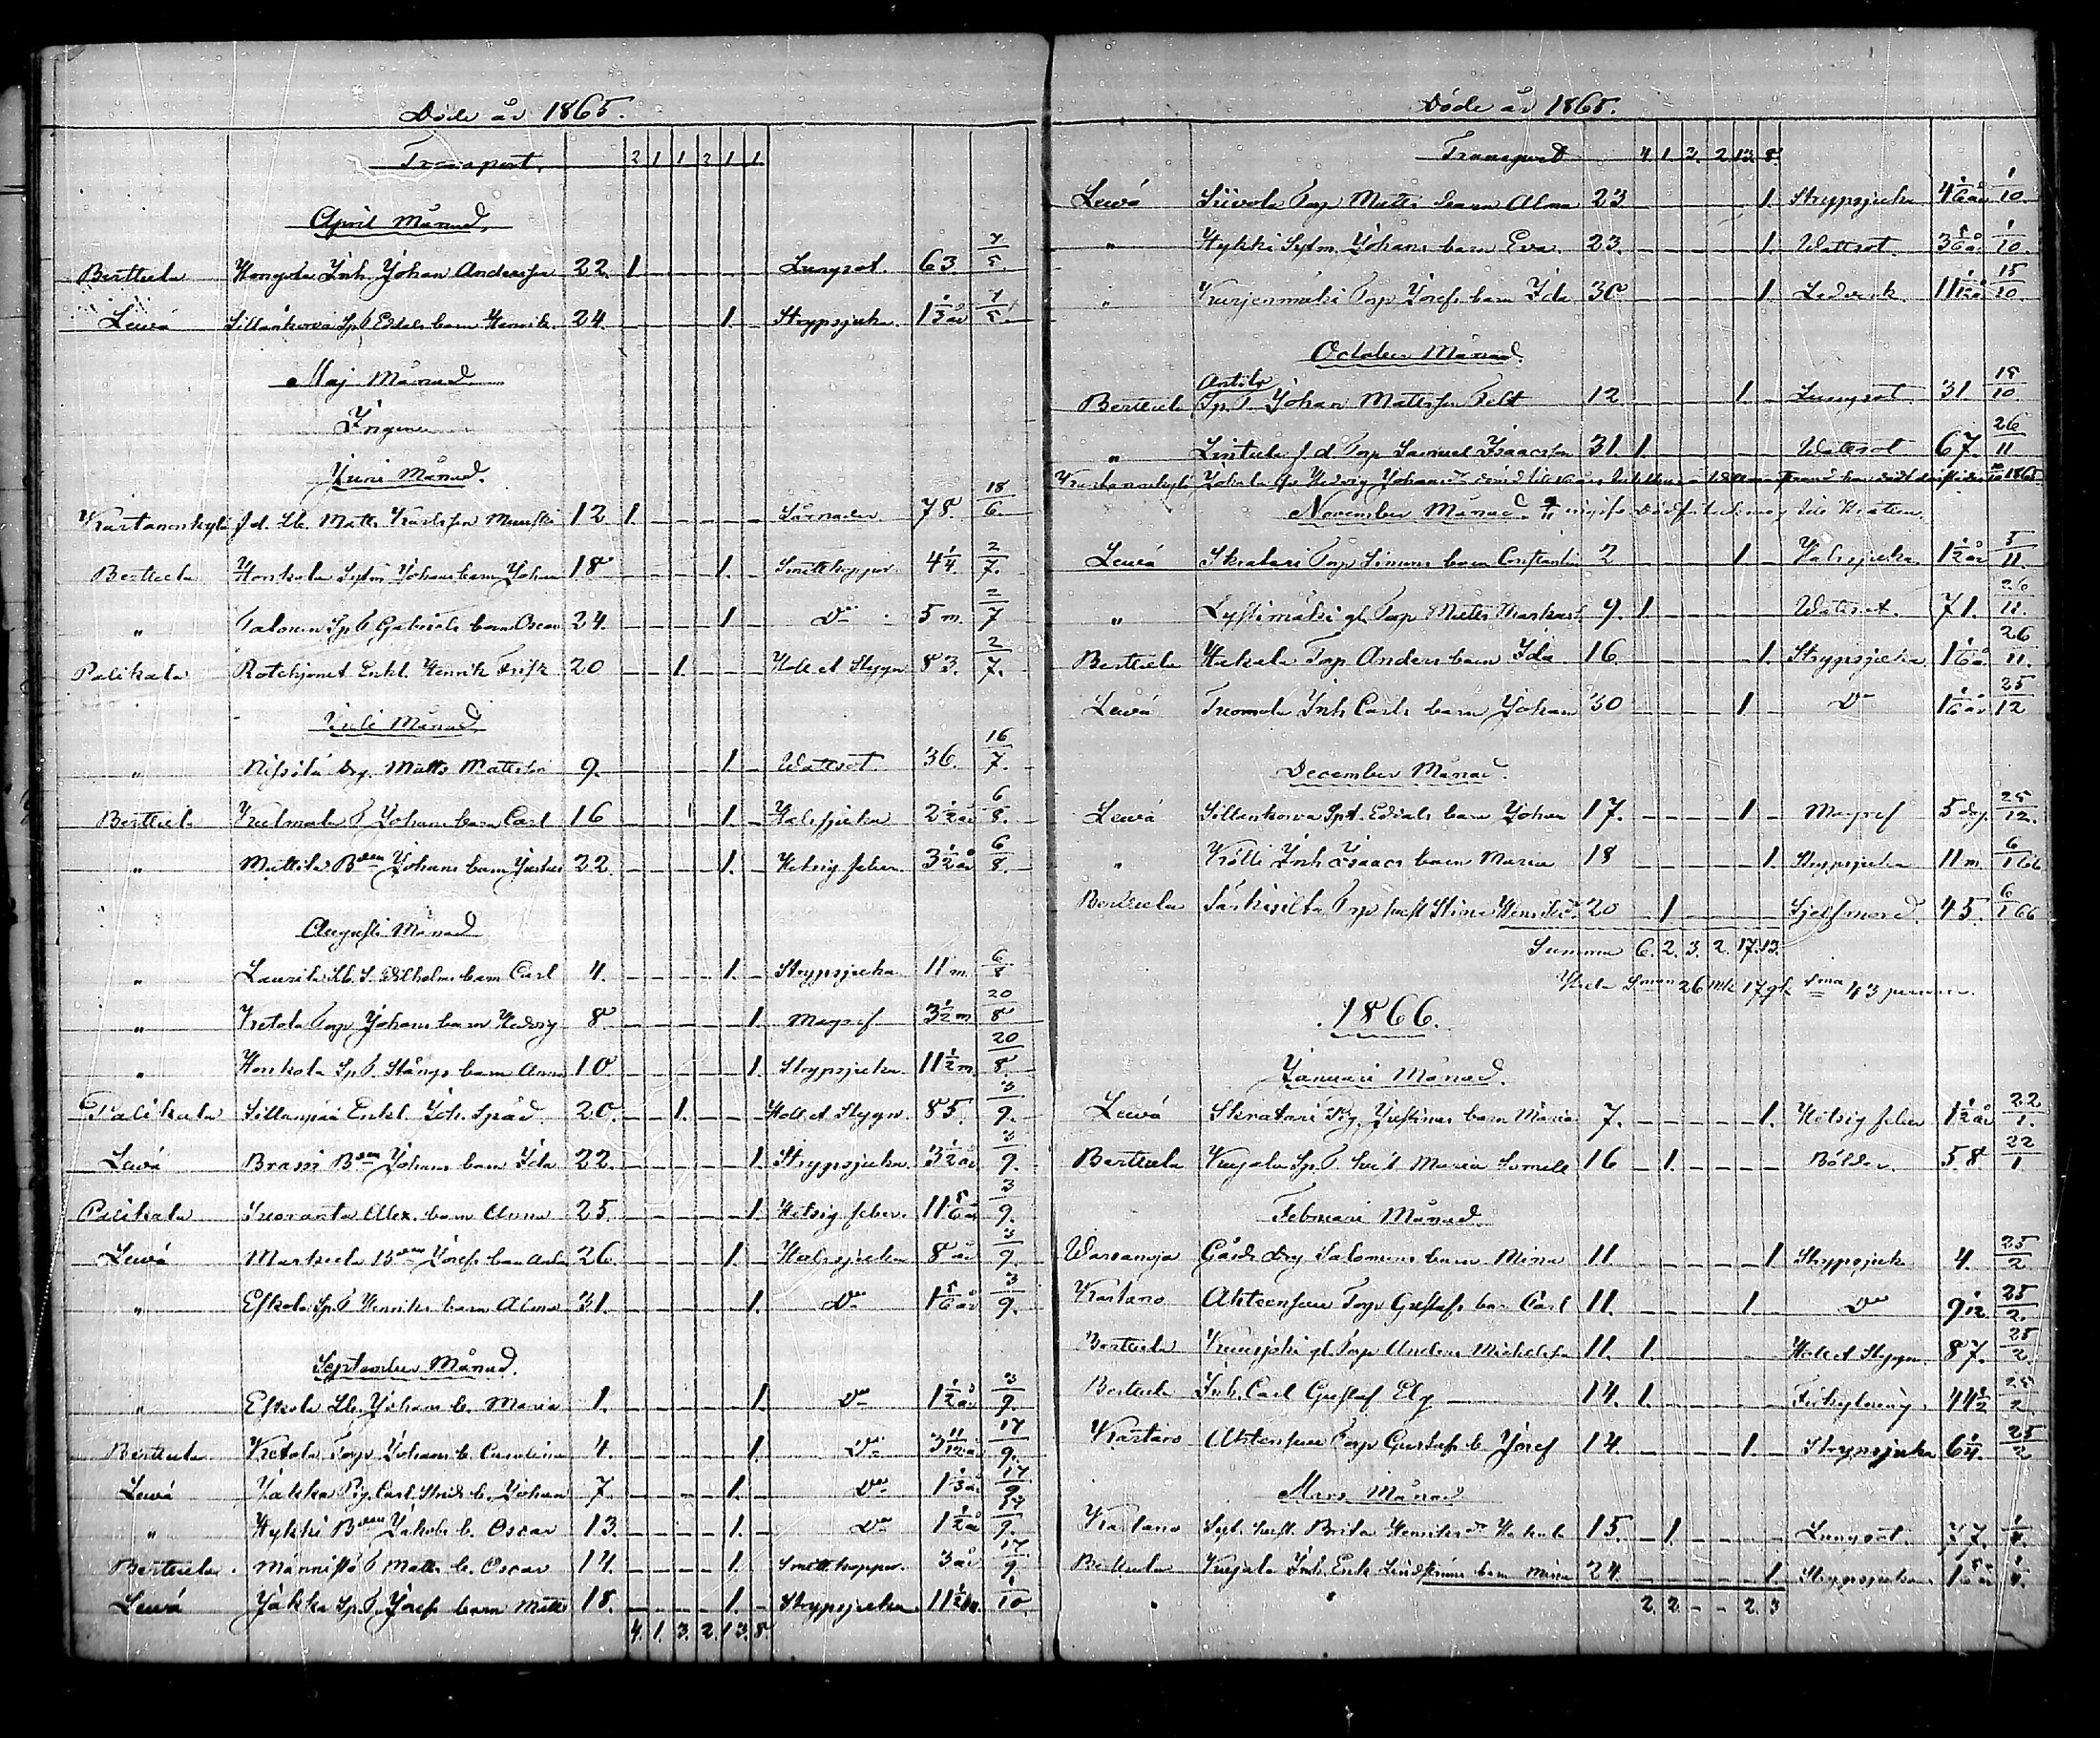 Döde år 1865.
Transport. 2 1 1 2 1 1
April Månad.
Berttula Hongola Inh. Johan Andersson 22. 1. Lungsot. 63. 7/5.
Lewä Sillankorva Sp.T. Edvals barn Henrik. 24. 1. Strypsjuka. 1 1/3 år 7/5.
Maj Månad.
Ingen
Juni Månad.
Kartanonkylä f.d. Lb. Matts Karlsson 12 1. Sårnader 78. 18/6.
Berttula Honkola Sytn. Johans barn Johan 18 1. Smittkoppor. 4 1/4. 2/7.
" Talonen Sp.T. Gabriels barn Oscar 24. 1 Do 5 m. 2/7
Palikala Rotehjonet Enkl. Henrik Frisk 20 1. Håll et Styggn 83. 2/7.
Juli Månad.
" Nissilä Drg. Matts Mattsson 9. 1. Wattsot. 36. 16/7.
Berttula T. Johans barn Carl 16 1. Halssjuka 2 1/2 år 6/8.
" Mattila Bden Johans barn Justus 22. 1. Hetsig feber. 3 1/2 år 6/8.
Augusti Månad
" Laurila Lb. S. Wilhelms barn Carl 4. 1. Strypsjuka 11 m. 6/8
" Ketola Torp Johans barn Hedvig 8. 1. Magref 3 1/2 m 20/8
" Honkola Sp.T. Stångs barn Anna 10. 1. Strypsjuka. 11 1/2 m. 20/8.
Palikala Sillanpää Enkl. Joh. Späd. 20. 1. Håll et Styggn. 85. 3/9.
Lewä Brassi Bden Johans barn Ida 22. 1. Strypsjuka. 3 1/2 år 3/9.
Palikala Alex. barn Anna 25. 1. Hetsig feber. 11 5/6 år 3/9.
Lewä Markula Bden Josefs barn 26. 1. Halssjuka 8 år 3/9.
" Eskola Sp.T. Henriks barn Alma 31. 1. Do 1 5/6 år 3/9.
September Månad.
" Eskola Lb. Johans b. Maria 1. 1. Do 1 1/2 år 3/9.
Berttula Ketola Torp Johans b. Carolina 4. 1. Do 3 11/12 år 17/9.
Lewä Jakka Carl b. Johan 7. 1. Do 1 1/3 år 17/9
" Hykki Bden Jakobs b. Oscar 13. 1. Do 1 1/2 år 17/9.
Berttula Männistö T. Matts b. Oscar 14. 1. Smittkoppor. 3 år 17/9
Lewä Jakka Sp.T. Josefs barn Matts 18. 1. Strypsjuka. 11 1/2 m. 1/10.
4. 1. 3. 2. 13. 8.
Döde år 1865.
Transport 4. 1. 3. 2. 13. 8.
Lewä Siivola Torp Matts barn Alma 23 1. Strypsjuka 4 1/6 år 1/10.
" Hykki Sytn. Johans barn Eva. 23. 1. Wattsot. 3 5/6 år 1/10.
" Kurjenmäki Torp Josefs barn Ida 30 1. Ledverk. 11 15/10.
October Månad.
Anttila
Berttula Sp.T. Johan Mattsson Felt 12. 1. Lungsot. 31 15/10.
" Lintula f.d. Torp Samuel Isaacsson 31. 1. Wattsot 67. 26/11
Kartanonkylä Jokela Hedvig Johansdr 1865.
November Månad.
Lewä Skratari Torp Simons barn Constantin 2 1. Halssjuka. 1 1/2 år 5/11.
" Lystimäki gl. Torp Matts 9. 1. Wattsot. 71. 26/11.
Berttula Hakala Torp Anders barn Ida 16. 1. Strypsjuka 1 1/6 år. 26/11.
Lewä Tuomola Inh. Carls barn Johan 30 1. Do 1 1/6 år 25/12
December Månad.
Lewä Sillankorva Sp.T. Edvals barn Johan 17. 1. Magref 5 dag. 25/12.
" Kölli Inh Isaacs barn Maria 18 1. Strypsjuka 11 m. 6/1 66
Berttula Särkisilta Torp hust Stina Henriksdr 20 1. Sjelfmord. 45. 6/1 66
Summa 6. 2. 3. 2. 17. 13.
26 mk 17 qk 43 personer.
1866.
Januari Månad.
Lewä Skratari Justinas barn Maria 7. 1. Hetsig feber 1 1/2 år 22/1.
Berttula Kujala Sp.T. Maria 16 1. Bölder. 58 22/1
Februari Månad.
Warsanoja Gårds Drg Salomons barn Mina 11. 1 Strypsjuka 4. 25/2
Kartano Ahteensuu Torp Gustafs ban Carl 11. 1. Do 9 1/12 25/2.
Berttula gl. Torp Anders Michelsson 11. 1. Håll et Styggn. 87. 25/2.
Berttula Inh. Carl Gustaf Elg 14. 1. Förkylning. 44 1/2 25/2
Kartano Ahteensuu Torp Gustafs b. Josef 14. 1. Strypsjuka 6 1/4. 25/2
Mars Månad
Kartano hust. Brita Henriksdr 15. 1. Lungsot. 37. 1/4.
Berttula Kujala Inh. Erik Lindströms barn Mina 24. 1. Strypsjuka. 1/4.
2. 2. - - 2. 3